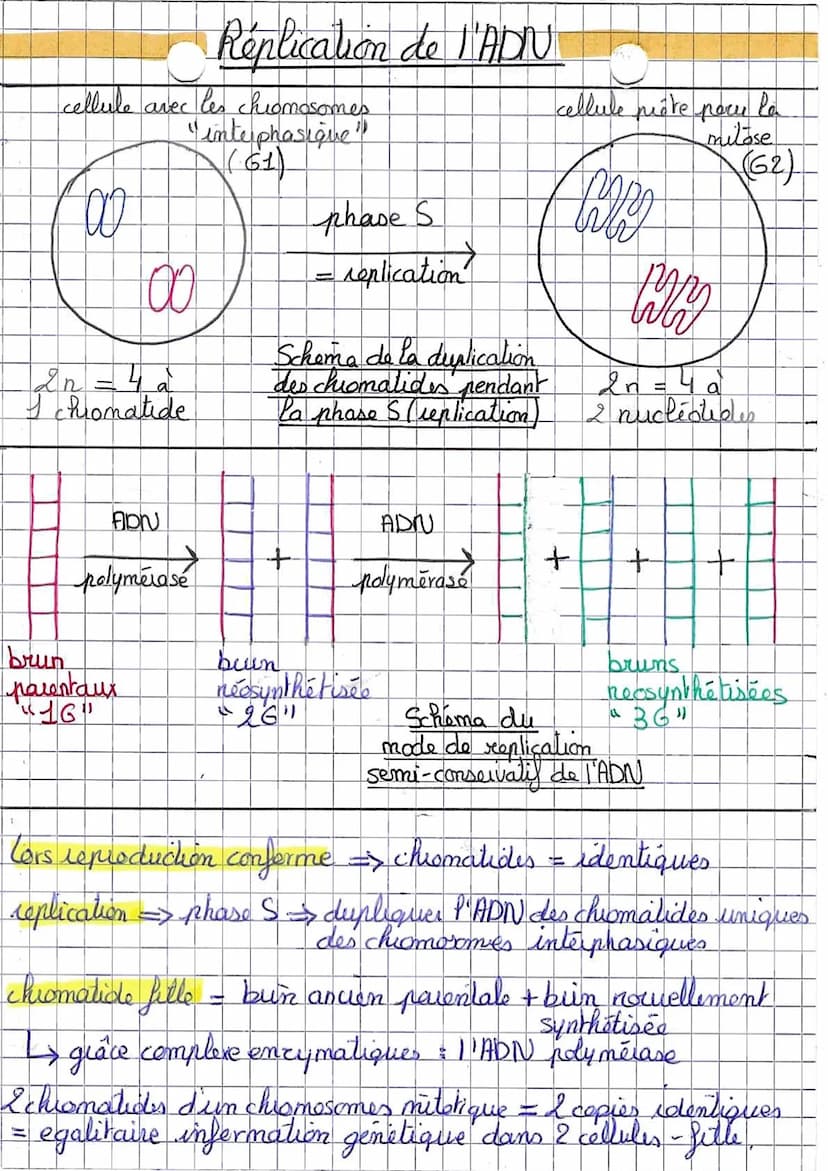 Réplication de l'ADN
cellule avec les chromosomes
"interphasique"
(G1)
cellule prête pour la
mitose
(G2)
phase S
= replication
2n = 4 à
1 chromatide
Schéma de la duplication
des chromatides pendant
la phase S (replication)
2n = 4 à
2 nucléotides
ADN
polymérase
+
ADN
polymérase
+
+
+
brun
parentaux
"1G"
brun
néosynthétisée
"2G"
bruns
neosynthétisées
"3G"
Schéma du
mode de replication
semi-conservatif de l'ADN
Lors reproduction conforme => chromatides = identiques
replication => phase S => dupliquer l'ADN des chromatides uniques
des chromosomes interphasiques
chromatide fille = brin ancien parentale + brin nouvellement
synthétisée
↳ grâce complexe enzymatiques : l'ADN polymérase
2 chromatides d'un chromosomes mitotique = 2 copies identiques
= egalitaire information génétique dans 2 cellules-fille.